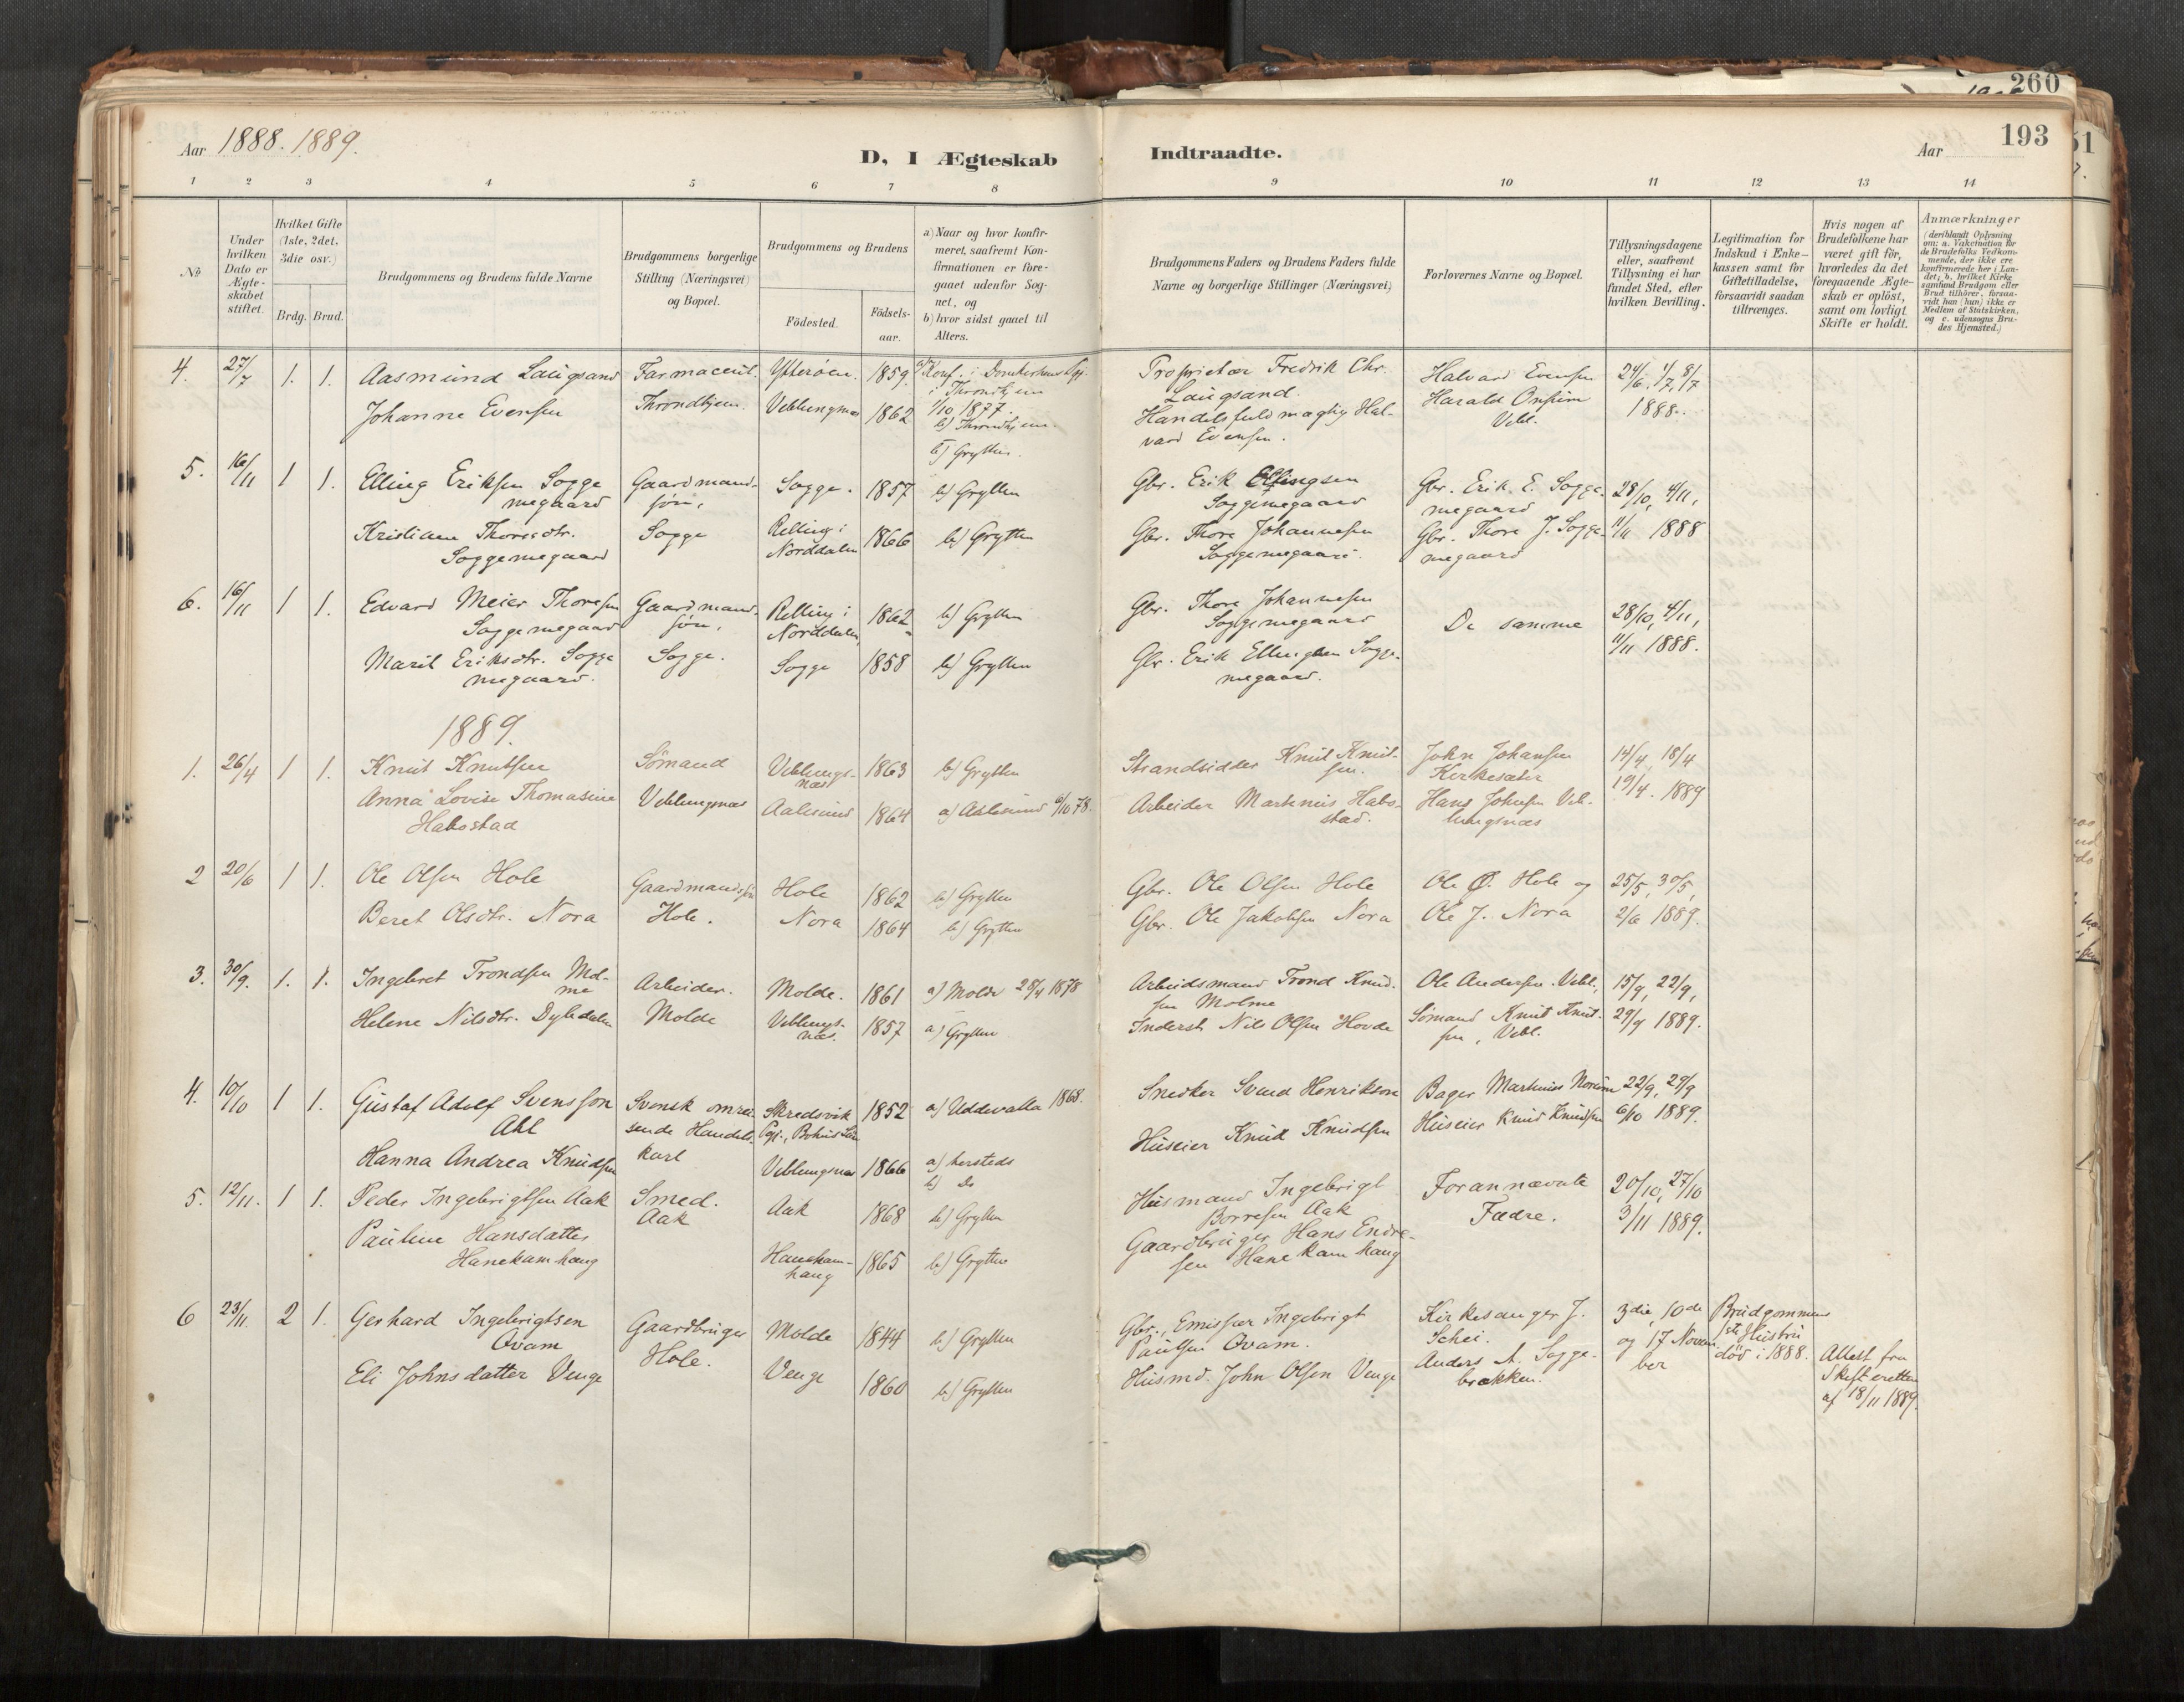 260
193
Aar 1888. 1889.
D, I Ægteskab
Indtraadte.
Aar
1 2 3 4 5 6 7 8 9 10 11 12 13 14
No
Under hvilken Dato er Ægteskabet stiftet.
Hvilket Gifte (1ste, 2det, 3die osv.)
Brdg. Brud.
Brudgommens og Brudens fulde Navne
Brudgommens borgerlige Stilling (Næringsvei) og Bopæl.
Brudgommens og Brudens
Födested.
Födselsaar.
a) Naar og hvor konfirmeret, saafremt Konfirmationen er foregaaet udenfor Sognet, og
b) hvor sidst gaaet til Alters.
Brudgommens Faders og Brudens Faders fulde Navne og borgerlige Stillinger (Næringsvei)
Forlovernes Navne og Bopæl.
Tillysningsdagene eller, saafremt Tillysning ei har fundet Sted, efter hvilken Bevilling.
Legitimation for Indskud i Enkekassen samt for Giftetilladelse, forsaavidt saadan tiltrænges.
Hvis nogen af Brudefolkene har været gift för, hvorledes da det foregaaende Ægteskab er oplöst, samt om lovligt Skifte er holdt.
Anmærkninger (deriblandt Oplysning om: a. Vakcination for de Brudefolks Vedkommende, der ikke ere konfirmerede her i Landet; b. hvilket Kirkesamfund Brudgom eller Brud tilhörer, forsaavidt han (hun) ikke er Medlem af Statskirken, og c. udensogns Brudes Hjemsted.)
4. 27/7 1. 1. Aasmund Laugsand Farmaceut. Ytterøen. 1859. a) Konf. i Domkirkens Sgj. Proprietær Fredrik Chr. Halvard Evensen 24/6, 1/7, 8/7
i Throndhjem Laugsand. Harald Onsum 1888.
Johanne Evensen Throndhjem. Veblungsnæs 1862 1/10 1877. Handelsfuldmægtig Hal- Vebl.
b) Throndhjem. vard Evensen.
b) Grytten.
5. 16/11 1 1. Elling Eriksen Sogge Gaardmand- Sogge. 1857 b) Grytten Gbr. Erik Ellingsen Gbr. Erik E. Sogge- 28/10, 4/11,
megaard søn, Soggemegaard megaard
Kristiane Thoresdtr. Sogge Relling i 1866 b) Grytten Gbr. Thore Johannesen Gbr. Thore J. Sogge- 11/11 1888
Soggemegaard Norddalen Soggemegaard. megaard
6. 16/11 1 1. Edvard Meier Thoresen Gaardmand- Relling i 1862 b) Grytten Gbr. Thore Johannesen De samme 28/10, 4/11,
Soggemegaard søn, Norddalen Soggemegaard 11/11 1888.
Marit Eriksdtr. Sogge Sogge. Sogge 1858 b) Grytten Gbr. Erik Ellingsen Sogge-
megaard. megaard.
1889.
1. 26/4 1 1. Knut Knutsen Sømand Veblungs- 1863 b) Grytten Strandsidder Knut Knut- John Johansen 14/4, 18/4
næs sen. Kirkesæter
Anna Lovise Thomasine Veblungsnæs Aalesund 1864 a) Aalesund 6/10 78. Arbeider Martinus Habo- Hans Johnsen Veb- 19/4. 1889
Habostad stad. lungsnæs
2 20/6 1 1. Ole Olsen Hole Gaardmandssøn Hole 1862 b) Grytten Gbr. Ole Olsen Hole Ole Ø. Hole og 25/5, 30/5,
Beret Olsdtr. Nora Hole. Nora 1864 b) Grytten Gbr. Ole Jakobsen Nora Ole J. Nora 2/6 1889.
3. 30/9. 1. 1. Ingebret Trondsen Mol- Arbeider. Molde. 1861 a) Molde 28/4 1878 Arbeidsmand Trond Knud- Ole Andersen Vebl., 15/9, 22/9,
me sen Molme
Helene Nilsdtr. Dyledalen Molde Veblungs- 1857 a) Grytten Inderst Nils Olsen Hovde Sømand Knut Knut- 29/9 1889.
næs. sen, Vebl.
4. 10/10 1 1. Gustaf Adolf Svensson Svensk omrei- Skredsvik 1852 a) Uddevalla 1868. Snedker Svend Henrikson Bager Martinus 22/9, 29/9
Ahl sende Handels- Pgj., Bohus Län
Hanna Andrea Knudsen karl Veblungsnæs 1866 a) hersteds Huseier Knud Knudsen Huseier Knud Knudsen 6/10 1889.
b) Do
5. 12/11. 1 1. Peder Ingebrigtsen Aak Smed. Aak 1868 b) Grytten Husmand Ingebrigt Forannævnte 20/10, 27/10
Aak Borresen Aak Fædre. 3/11 1889.
Pauline Hansdatter Hanekam- 1865 b) Grytten Gaardbruger Hans Endre-
Hanekamhaug haug sen Hanekamhaug
6 23/11. 2 1. Gerhard Ingebrigtsen Gaardbruger Molde 1844 b) Grytten Gbr., Emissær Ingebrigt Kirkesanger J. 3die, 10de Brudgommens
Qvam Paulsen Qvam. Schei. og 17 Novem- 1ste Hustru
Eli Johnsdatter Venge Hole. Venge 1860 b) Grytten Husmd. John Olsen Venge Anders A. Sogge- ber død i 1888. Attest fra
brækken. Skifteretten
af 18/11 1889.